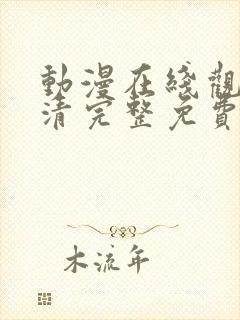 動漫在綫觀
清完整免費
木流年